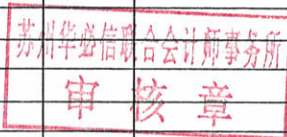 苏州华必信联合会计师事务所
审核章